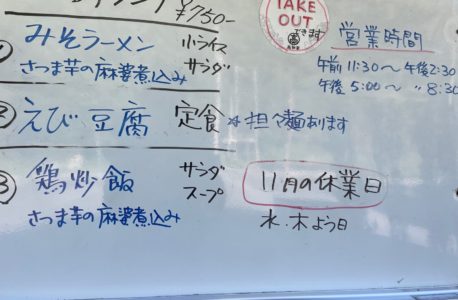 ¥750-
TAKE
OUT
できます
営業時間
午前 11:30〜午後2:30
午後 5:00〜 〃 8:30
みそラーメン 小ライス
さつま芋の麻婆煮込み サラダ
② えび豆腐 定食 *担々麺あります
③ 鶏炒飯 サラダ
スープ
さつま芋の麻婆煮込み
11月の休業日
水.木よう日